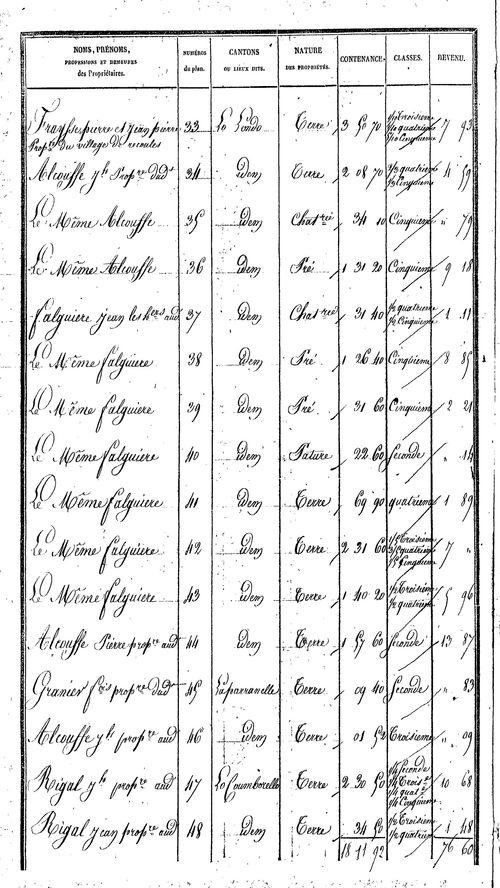 NOMS, PRÉNOMS, PROFESSIONS ET DEMEURES des Propriétaires. NUMÉROS du plan. CANTONS OU LIEUX DITS. NATURE DES PROPRIÉTÉS. CONTENANCE. CLASSES. REVENU.
Laysse pierre et jean pierre 33 La Lando Terre 3 50 70 Troisieme quatrieme Cinquieme 7 93
Prop.re du village de recoules
Alcouffe Prop.re dud.t 34 idem Terre 2 08 70 quatrieme Cinquieme 4 59
Le Même Alcouffe 35 idem Chat.reé 34 10 Cinquieme " 79
Le Même Alcouffe 36 idem Pré 1 31 20 Cinquieme 9 18
falguiere jean les h.ers aud 37 idem Chat.reé 31 40 1/2 quatrieme 1/2 Cinquieme 1 11
Le Même falguiere 38 idem Pré 1 26 40 Cinquieme 8 85
Le Même falguiere 39 idem Pré 31 60 Cinquieme 2 21
Le Même falguiere 40 idem Pature 22 60 Seconde " 14
Le Même falguiere 41 idem Terre 69 90 quatrieme 1 89
Le Même falguiere 42 idem Terre 2 31 60 Troisieme quatrieme Cinquieme 7 "
Le Même falguiere 43 idem Terre 1 40 20 1/2 Troisieme 1/2 quatrieme 5 96
Alcouffe Pierre prop.re aud 44 idem Terre 1 57 60 Seconde 13 87
Granier f.cois prop.re dud 45 Laparranelle Terre 09 40 Seconde " 83
Alcouffe prop.re aud 46 idem Terre 01 52 Troisieme " 09
Rigal prop.re aud 47 La Coumborelle Terre 2 30 50 1/4 Seconde 1/4 Trois.e 1/4 quat.e 1/4 Cinquieme 10 68
Rigal jean prop.re aud 48 idem Terre 34 50 1/2 Troisieme 1/2 quatrieme 1 48
18 11 92 76 60